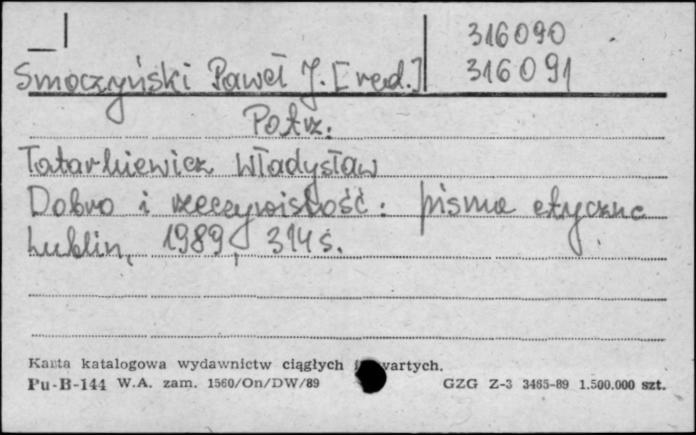 316090
316091
Smoczyński Paweł J. [red.]
Patrz.
Tatarkiewicz Władysław
Dobro i rzeczywistość : pisma etyczne
Lublin, 1989, 314 s.
Karta katalogowa wydawnictw ciągłych
Pu-B-144 W.A. zam. 1560/On/DW/89 GZG Z-3 3465-89 1.500.000 szt.